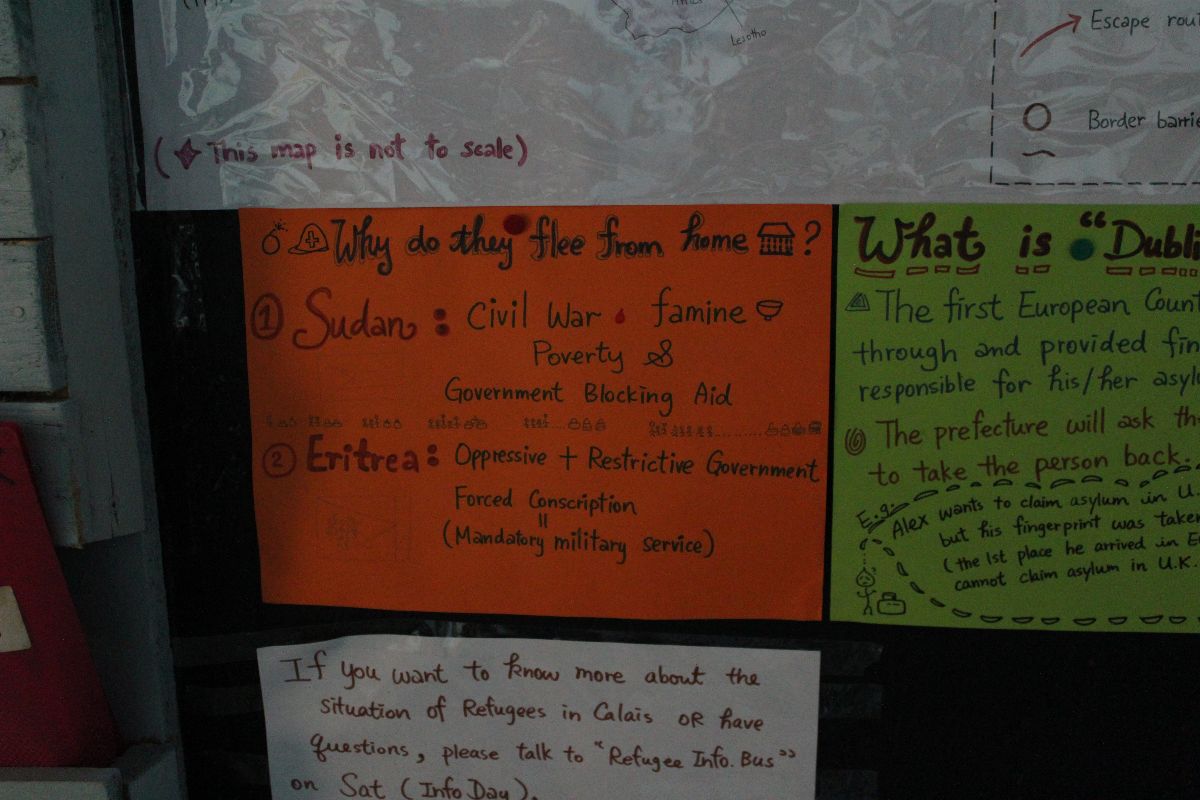 Lesotho
Escape
Border
( This map is not to scale)
Why do they flee from home ?
① Sudan : Civil War famine
Poverty &
Government Blocking Aid
② Eritrea : Oppressive + Restrictive Government
Forced Conscription
=
(Mandatory military service)
What is "
The first European
through and provided
responsible for his/her
The prefecture will ask
to take the person back.
E.g.
Alex wants to claim asylum in
but his fingerprint was
(the 1st place he arrived in
cannot claim asylum in U.K.
If you want to know more about the
situation of Refugees in Calais OR have
questions, please talk to "Refugee Info. Bus"
on Sat (Info Day).